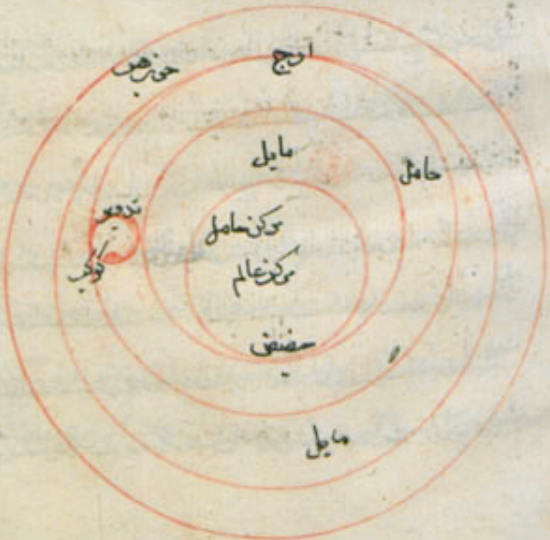 اوج
جوزهر
مایل
حامل
تدویر
مرکز حامل
کوکب
مرکز عالم
حضیض
مایل